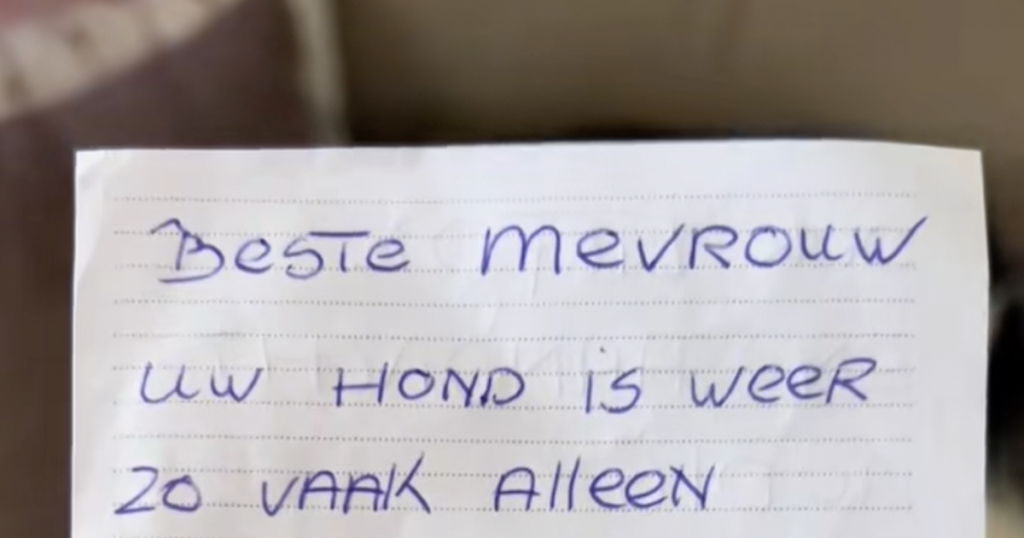 Beste mevrouw
uw hond is weer
zo vaak alleen